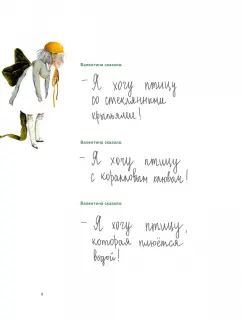 Валентина сказала:
– Я хочу птицу
со стеклянными
крыльями!
Валентина сказала:
– Я хочу птицу
с коралловым клювом!
Валентина сказала:
– Я хочу птицу,
которая плюётся
водой!